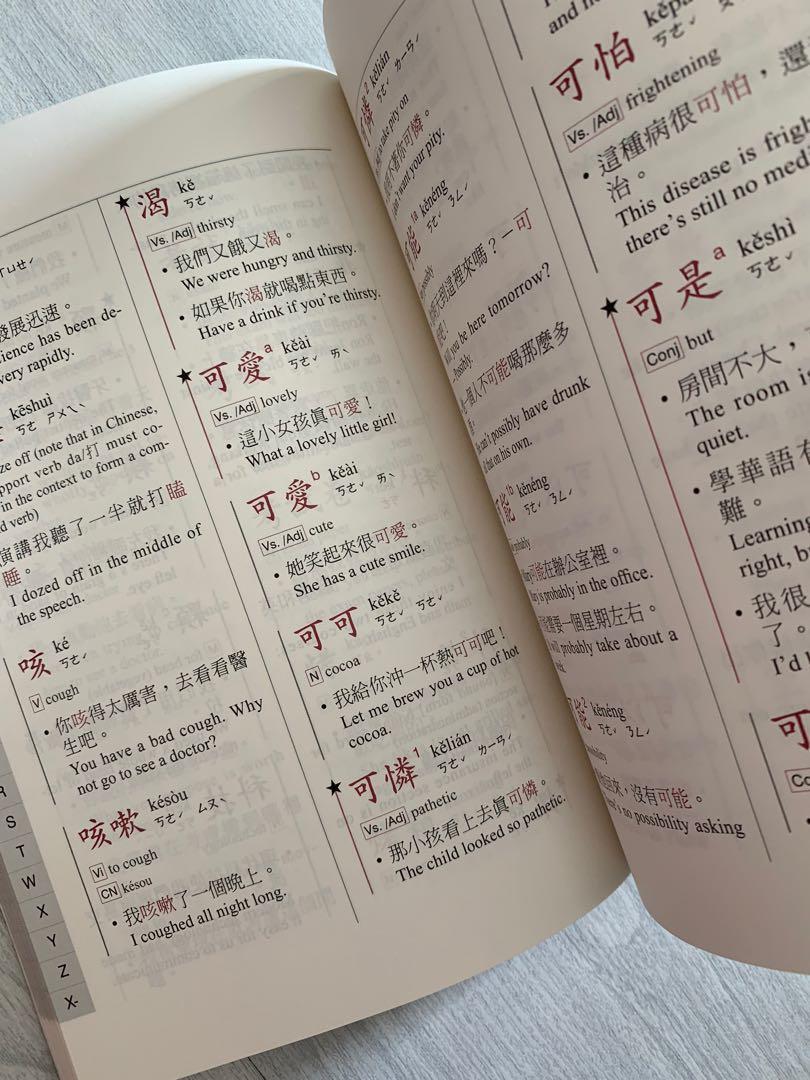 ㄩㄝˊ
發展迅速。
ience has been de-
very rapidly.
kēshuì
ㄎㄜ ㄕㄨㄟˋ
ze off (note that in Chinese,
pport verb da/打 must co-
in the context to form a com-
d verb)
演講我聽了一半就打瞌
睡。
I dozed off in the middle of
the speech.
咳 ké
ㄎㄜˊ
V cough
• 你咳得太厲害,去看看醫
生吧。
You have a bad cough. Why
not go to see a doctor?
咳嗽 késòu
ㄎㄜˊ ㄙㄡˋ
Vi to cough
CN késou
• 我咳嗽了一個晚上。
I coughed all night long.
R
S
T
W
X
Y
Z
X-
★渴 kě
ㄎㄜˇ
Vs. /Adj thirsty
• 我們又餓又渴。
We were hungry and thirsty.
• 如果你渴就喝點東西。
Have a drink if you're thirsty.
★可愛a kěài
ㄎㄜˇ ㄞˋ
Vs. /Adj lovely
• 這小女孩眞可愛!
What a lovely little girl!
可愛b kěài
ㄎㄜˇ ㄞˋ
Vs. /Adj cute
• 她笑起來很可愛。
She has a cute smile.
可可 kěkě
ㄎㄜˇ ㄎㄜˇ
N cocoa
• 我給你沖一杯熱可可吧!
Let me brew you a cup of hot
cocoa.
★可憐1 kělián
ㄎㄜˇ ㄌㄧㄢˊ
Vs. /Adj pathetic
• 那小孩看上去眞可憐。
The child looked so pathetic.
憐2 kělián
ㄎㄜˇ ㄌㄧㄢˊ
take pity on
你可憐。
want your pity.
能1a kěnéng
ㄎㄜˇ ㄋㄥˊ
possibly
到這裡來嗎?－可
能吧!
you be here tomorrow?
—Possibly.
一個人不可能喝那麼多
can't possibly have drunk
that on his own.
能1b kěnéng
ㄎㄜˇ ㄋㄥˊ
probably
可能在辦公室裡。
is probably in the office.
需要一個星期左右。
will probably take about a
能2 kěnéng
ㄎㄜˇ ㄋㄥˊ
回來,沒有可能。
no possibility asking
and
kěpà
ㄎㄜˇ
可怕
Vs. /Adj frightening
• 這種病很可怕,還
治。
This disease is frigh
there's still no medi
★可是a kěshì
ㄎㄜˇ ㄕˋ
Conj but
• 房間不大,
The room is
quiet.
• 學華語有
難。
Learning
right, b
• 我很
了。
I'd l
可
Co